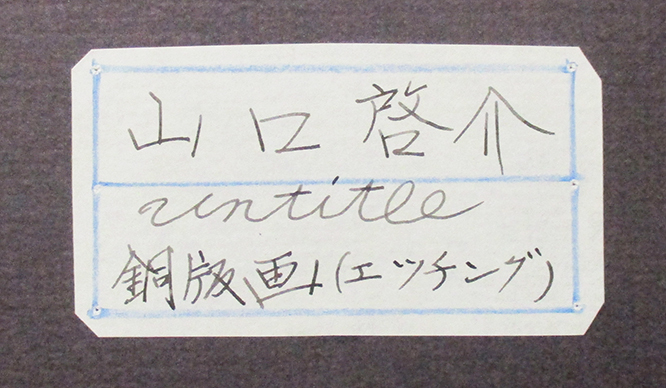 山口啓介
untitle
銅版画(エッチング)